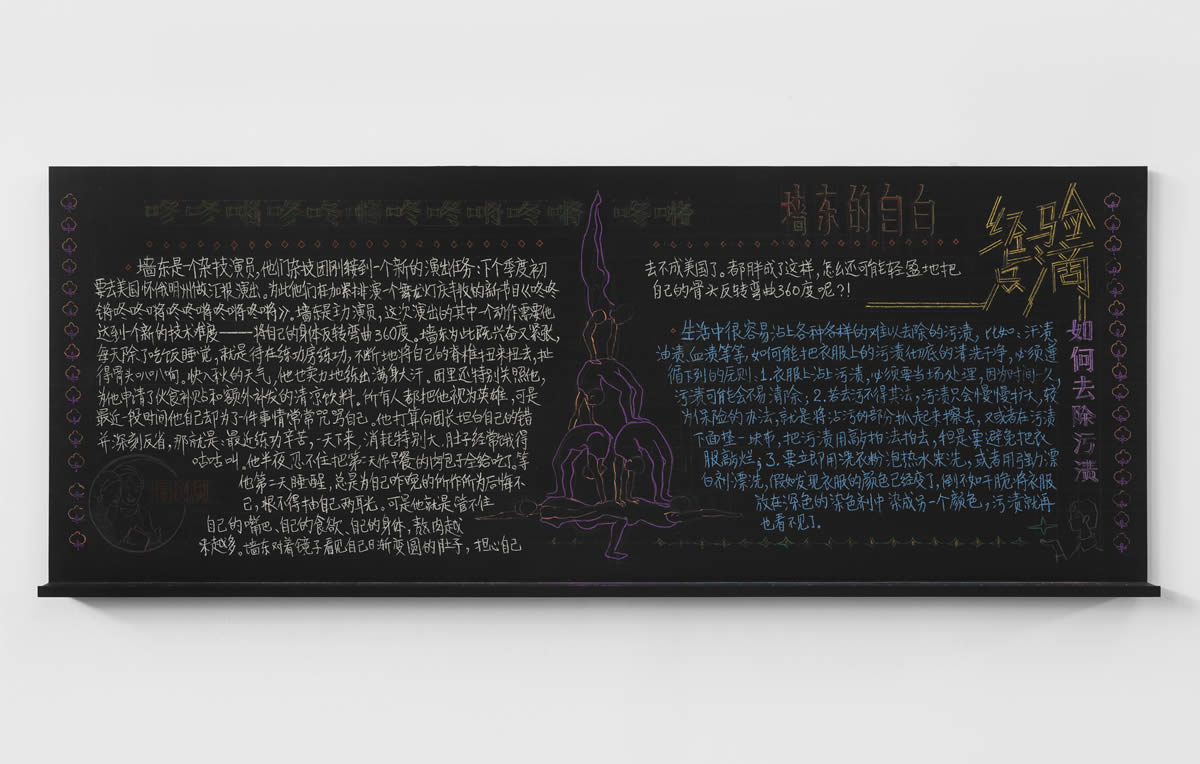 墙东的自白
墙东是个杂技演员,他们杂技团刚接到一个新的演出任务:下个季度初
要去美国怀俄明州做汇报演出。为此他们再加紧排演一个舞龙灯庆丰收的新节目《咚咚
墙东是主力演员,这次演出的其中一个动作需要他
达到个新的技术难度——将自己的身体反转弯曲360度。墙东为此既兴奋又紧张,
每天除了吃饭睡觉,就是待在练功房练功,不断地将自己的脊椎扭来扭去,扯
得骨头叭叭响。快入秋的天气,他也卖力地练出满身大汗。团里还特别关照他,
为他申请了伙食补贴和额外补发的清凉饮料。所有人都把他视为英雄,可是
最近一段时间他自己却为了一件事情常常咒骂自己。他打算向团长坦白自己的错
并深刻反省,那就是:最近练功辛苦,一天下来,消耗特别大,肚子经常饿得
咕咕叫。他半夜忍不住把第二天作早餐的肉包子全给吃了。等
他第二天睡醒,总是为自己昨晚的所作所为后悔不
已,恨不得抽自己两耳光。可是他就是管不住
自己的嘴巴、自己的食欲、自己的身体,熬肉越
来越多。墙东对着镜子看见自己日渐变圆的肚子,担心自己
去不成美国了。都胖成了这样,怎么还可能轻盈地把
自己的骨头反转弯曲360度呢?!
经验点滴
如何去除污渍
生活中很容易沾上各种各样的难以去除的污渍,比如:汗渍、
油渍、血渍等等,如何能把衣服上的污渍彻底的清洗干净,必须遵
循下列的原则:1.衣服上沾上污渍,必须要当场处理,因为时间一久,
污渍可能会不易清除;2.若去污不得其法,污渍只会慢慢扩大,较
为保险的办法,就是将沾污的部分扒起来擦去,又或者在污渍
下面垫一块布,把污渍用敲拍法拍去,但是要避免把衣
服敲烂;3.要立即用洗衣粉泡热水来洗,或者用强力漂
白剂漂洗,假如发现衣服的颜色已经变了,倒不如干脆将衣服
放在深色的染色剂中染成另一个颜色,污渍就再
也看不见了。